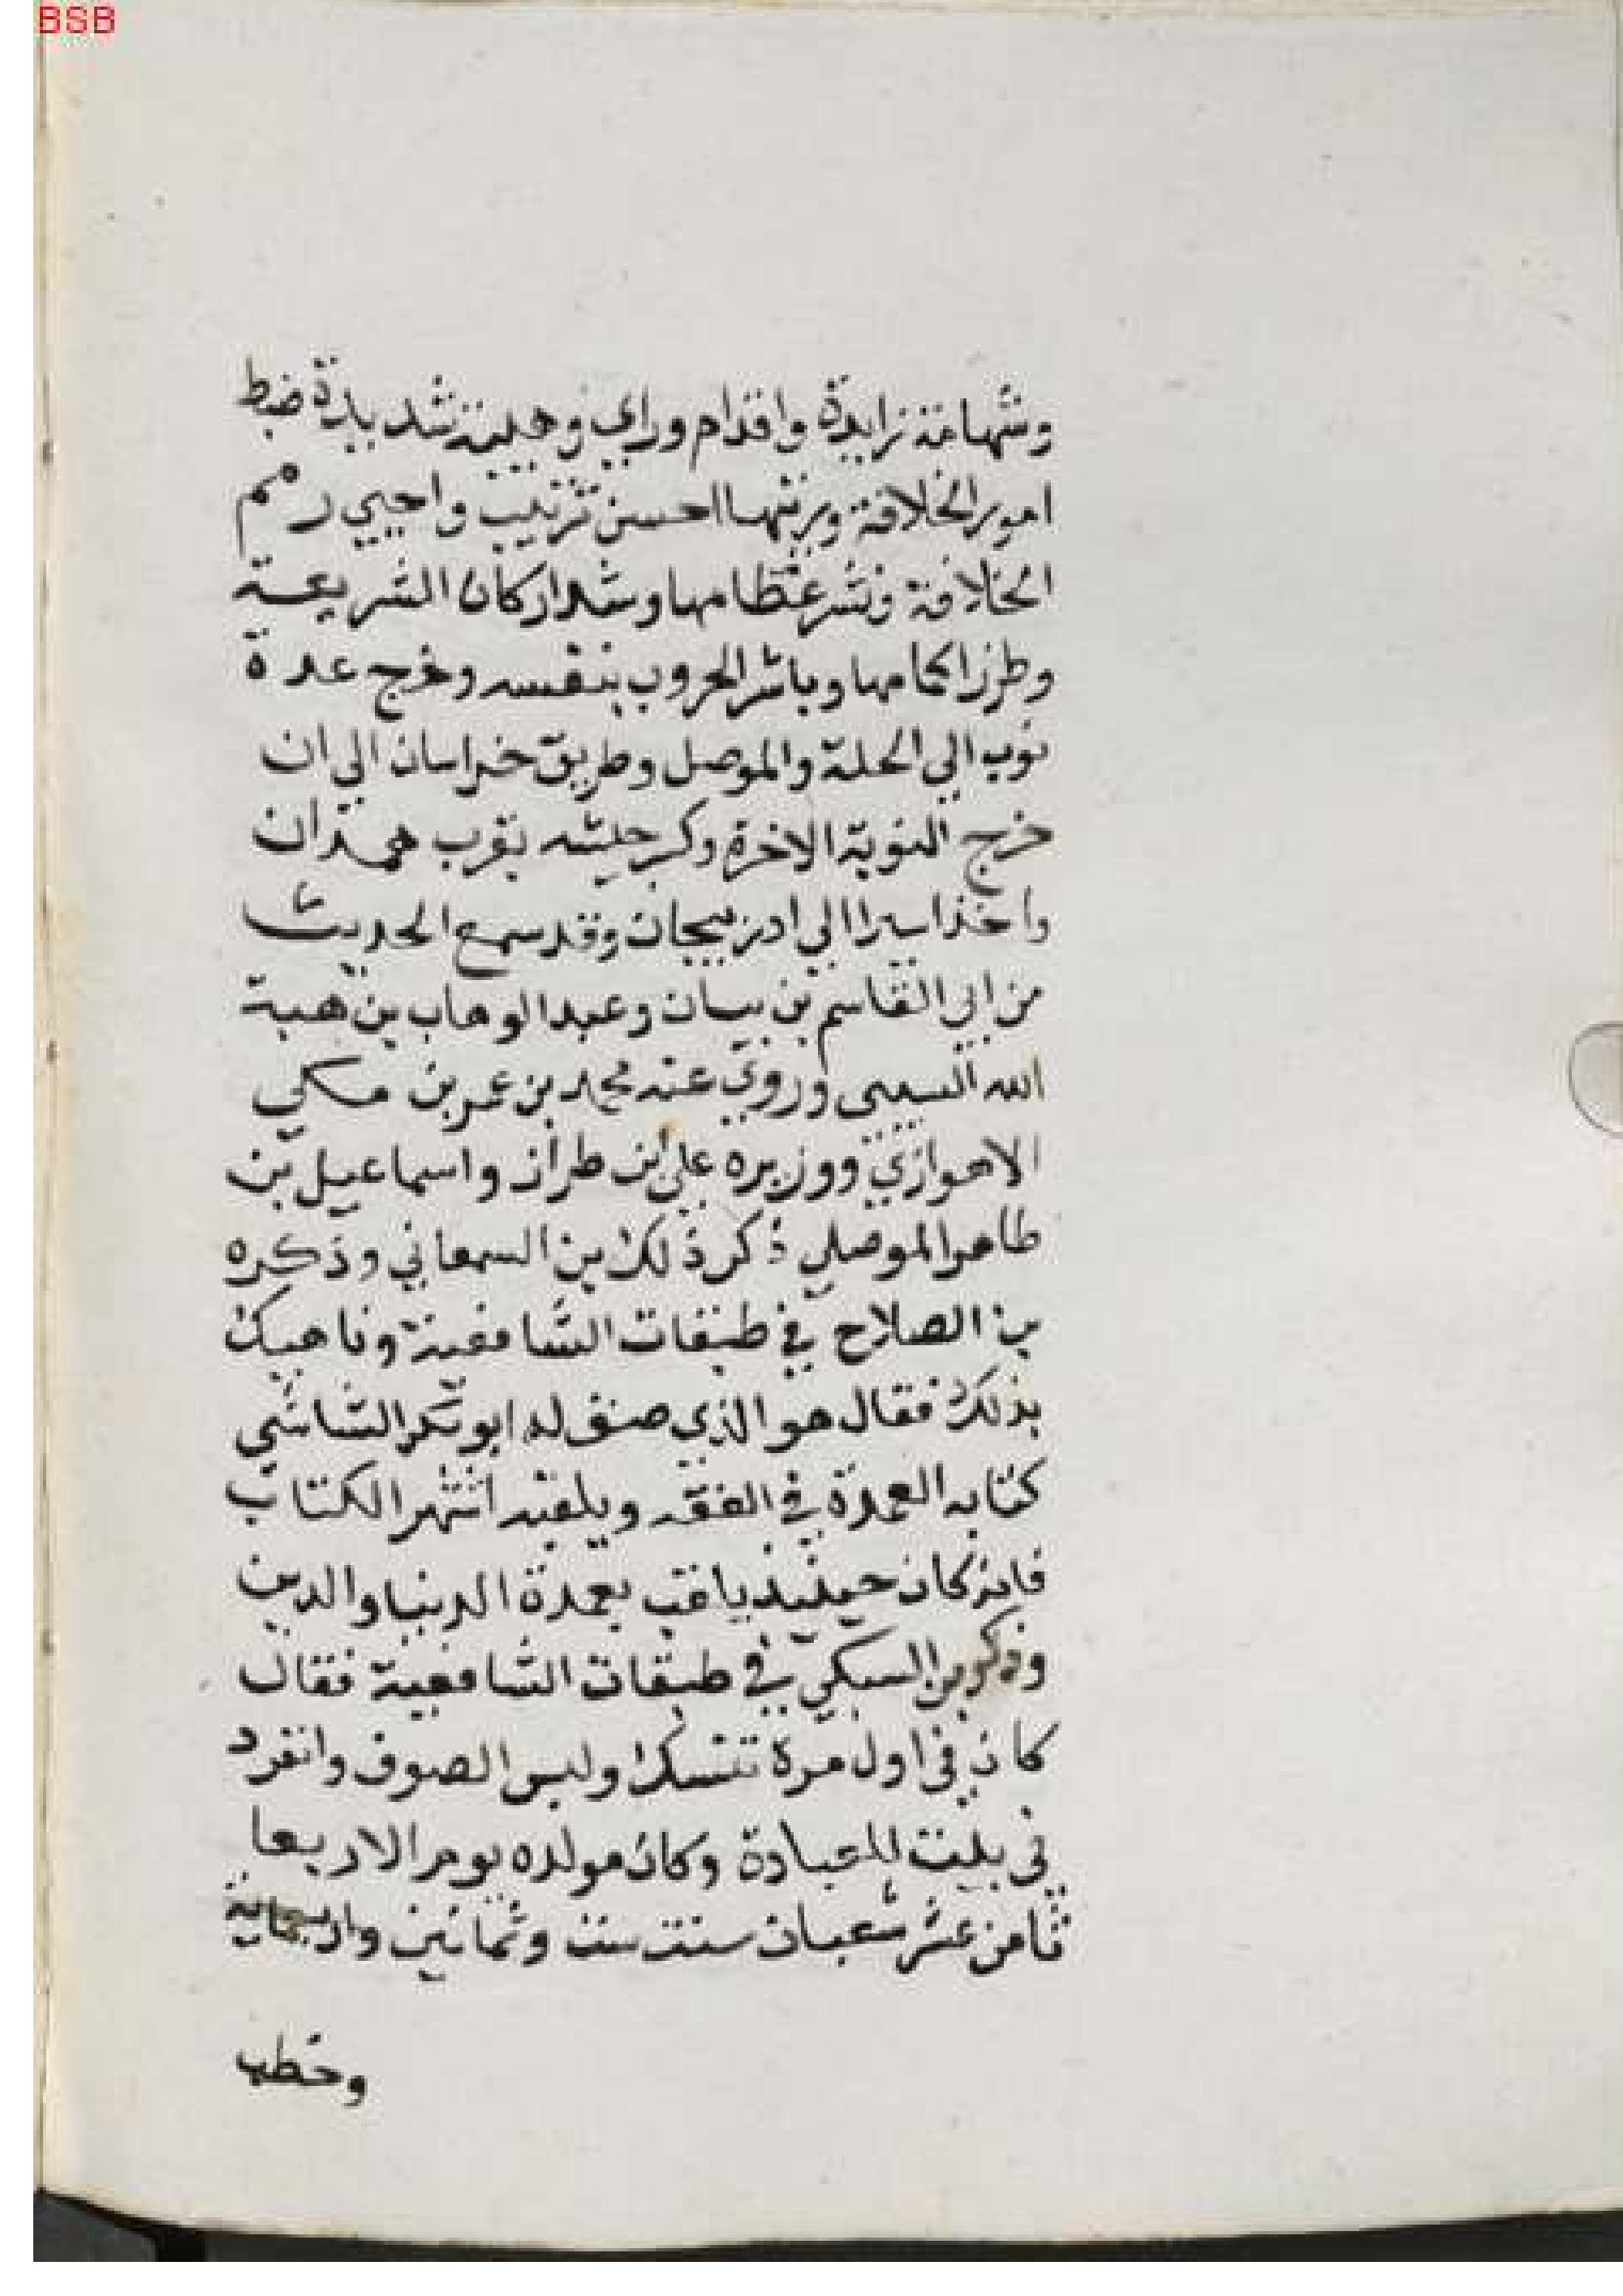 BSB
وشهامة زايدة واقدام وراي وهيبة شديدة ضبط
امور الخلافة ورتبها احسن ترتيب واحيي رمم
الخلافة ونشر عظامها وشد اركان الشريعة
وطرز اكمامها وباشر الحروب بنفسه وخرج عدة
نوب الي الحلة والموصل وطريق خراسان الي ان
خرج النوبة الاخرة وكسر جيشه بقرب همدان
واخذ اسيرا الي ادربيجان وقد سمع الحديث
من ابي القاسم بن بيان وعبد الوهاب بن هبة
الله السيبى وروي عنه محمد بن عمر بن مكي
الاهوازي ووزيره علي بن طراز واسماعيل بن
طاهر الموصلي ذكر ذلك بن السمعاني وذكره
بن الصلاح في طبقات الشافعية وناهيك
بذلك فقال هو الذي صنف له ابو بكر الشاشي
كتابه العمدة في الفقه وبلقبه اشتهر الكتاب
فانه كان حينيذ يلقب بعمدة الدنيا والدين
وذكره بن السبكي في طبقات الشافعية فقال
كان في اول مرة تنسك ولبس الصوف وانفرد
في بيت للعبادة وكان مولده يوم الاربعا
ثامن عشر شعبان سنة ست وثمانين واربعماية
وخطب